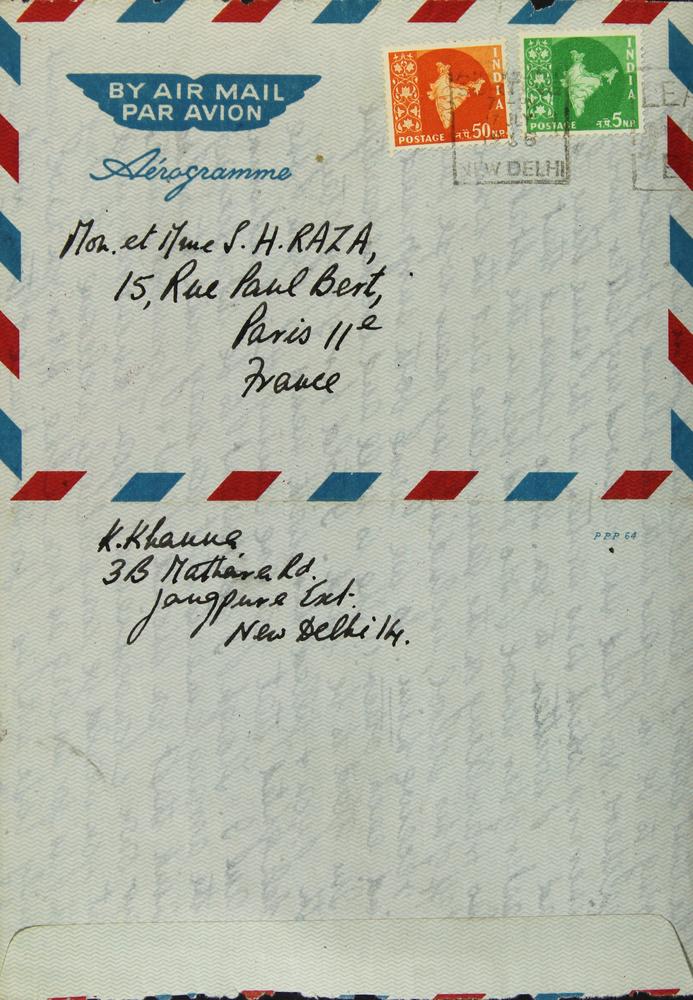 BY AIR MAIL
PAR AVION
Aérogramme
INDIA
POSTAGE न.पै.50 N.P.
INDIA
POSTAGE न.पै.5 N.P.
NEW DELHI
LEA
Mon. et Mme S. H. RAZA,
15, Rue Paul Bert,
Paris 11e
France
K. Khanna
3B Mathura Rd.
Jangpura Ext.
New Delhi 14.
PPP 64